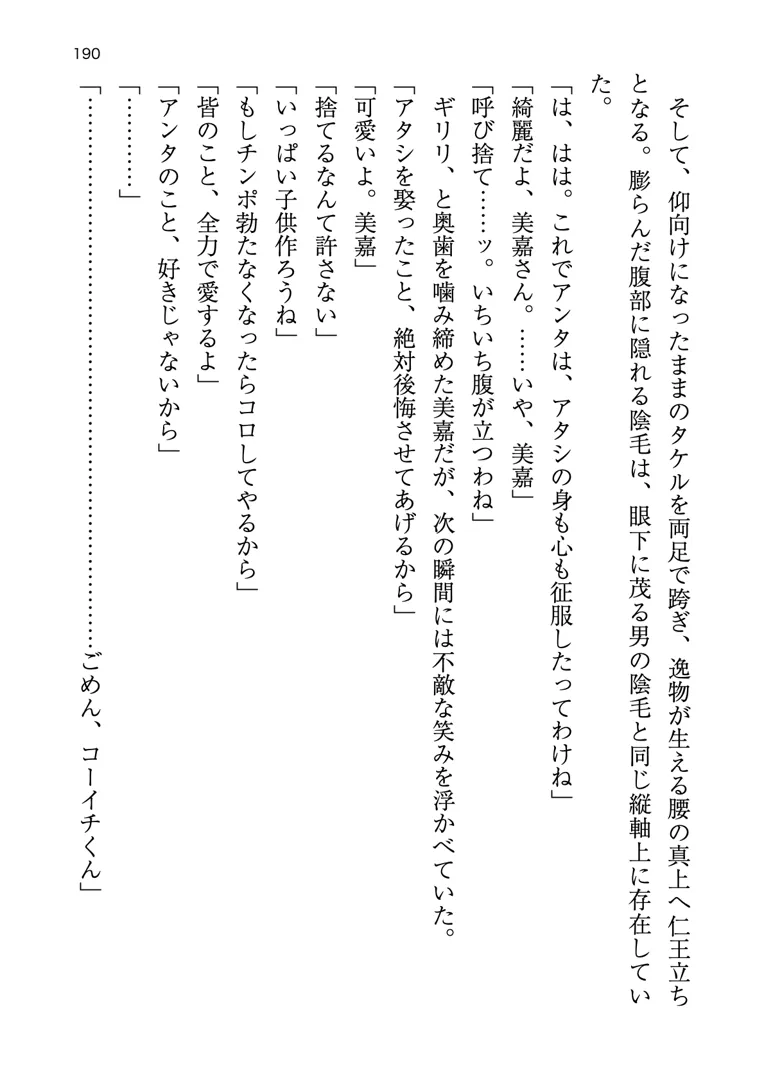 190
　そして、仰向けになったままのタケルを両足で跨ぎ、逸物が生える腰の真上へ仁王立ち
となる。膨らんだ腹部に隠れる陰毛は、眼下に茂る男の陰毛と同じ縦軸上に存在してい
た。
「は、はは。これでアンタは、アタシの身も心も征服したってわけね」
「綺麗だよ、美嘉さん。……いや、美嘉」
「呼び捨て……ッ。いちいち腹が立つわね」
　ギリリ、と奥歯を噛み締めた美嘉だが、次の瞬間には不敵な笑みを浮かべていた。
「アタシを娶ったこと、絶対後悔させてあげるから」
「可愛いよ。美嘉」
「捨てるなんて許さない」
「いっぱい子供作ろうね」
「もしチンポ勃たなくなったらコロしてやるから」
「皆のこと、全力で愛するよ」
「アンタのこと、好きじゃないから」
「…………」
「………………………………………………………………ごめん、コーイチくん」